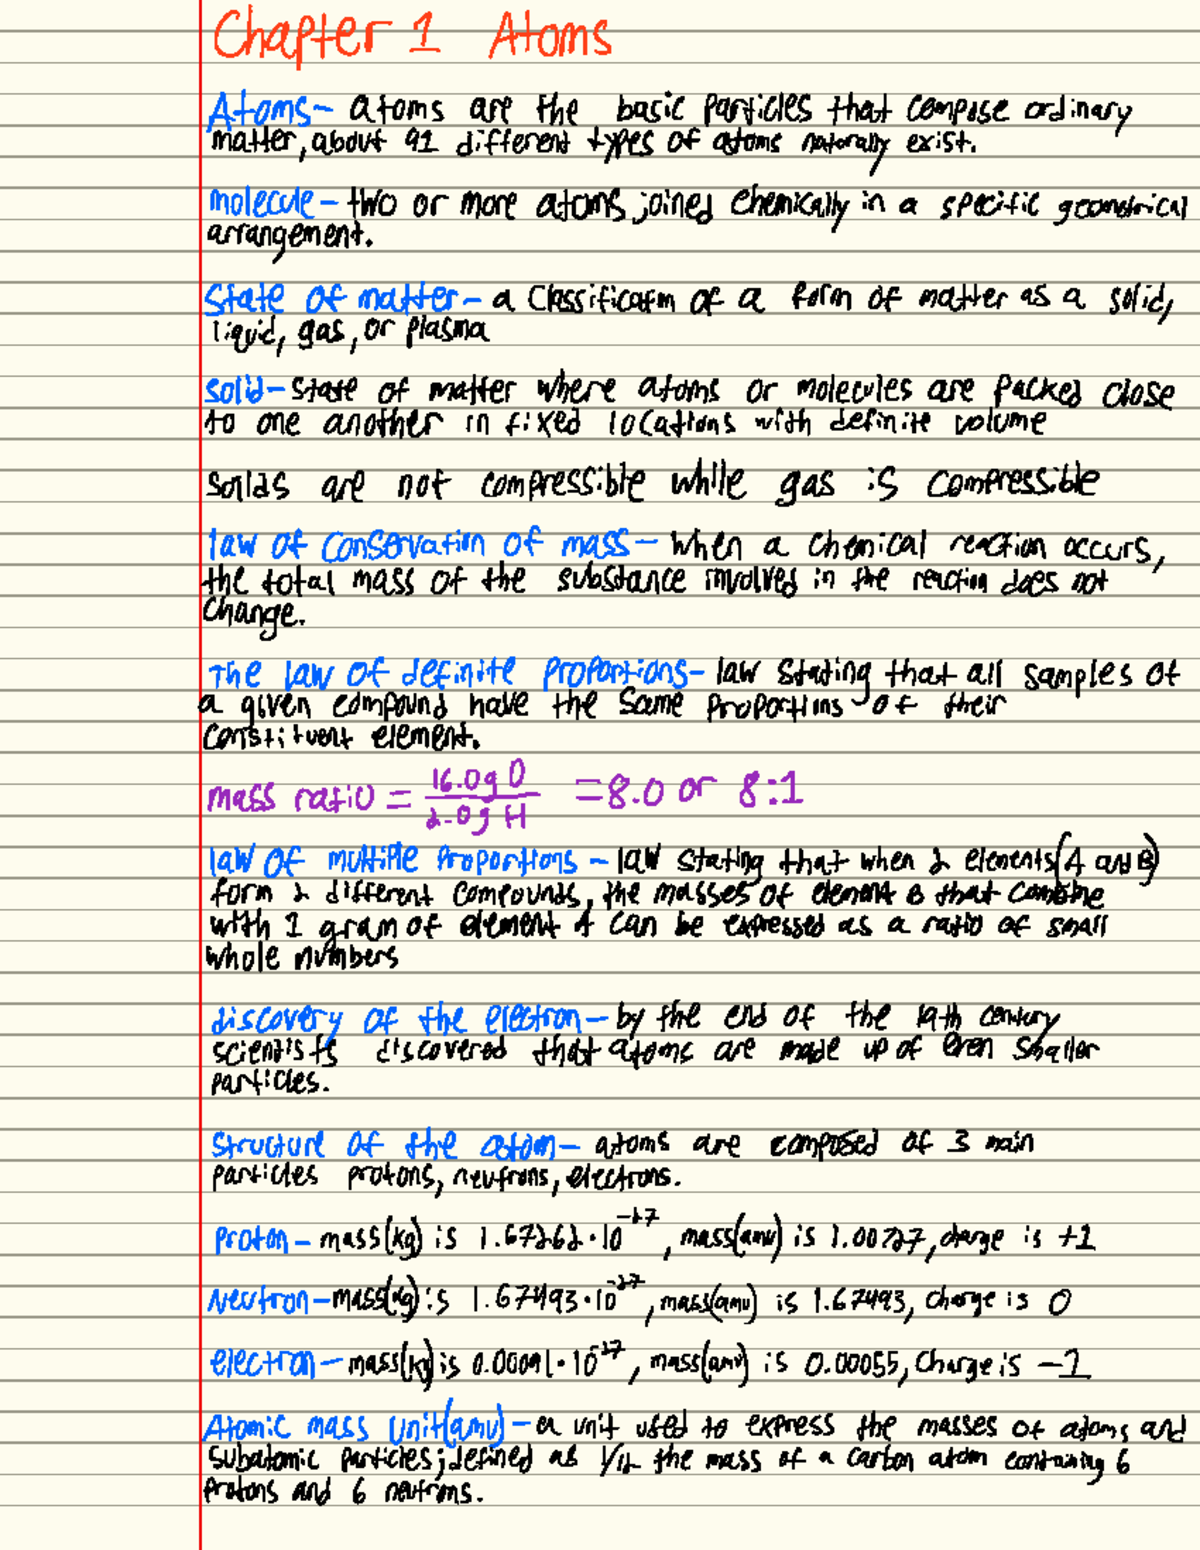 Chapter 1 Atoms
Atoms- atoms are the basic particles that compose ordinary
matter, about 91 different types of atoms naturally exist.
molecule- two or more atoms joined chemically in a specific geometrical
arrangement.
State of matter- a classification of a form of matter as a solid,
liquid, gas, or plasma
solid- state of matter where atoms or molecules are packed close
to one another in fixed locations with definite volume
solids are not compressible while gas is compressible
law of conservation of mass- when a chemical reaction occurs,
the total mass of the substance involved in the reaction does not
change.
The law of definite proportions- law stating that all samples of
a given compound have the same proportions of their
constituent element.
mass ratio = 16.0g O / 2.0g H = 8.0 or 8:1
law of multiple proportions - law stating that when 2 elements (A and B)
form 2 different compounds, the masses of element B that combine
with 1 gram of element A can be expressed as a ratio of small
whole numbers
discovery of the electron- by the end of the 19th century
scientists discovered that atoms are made up of even smaller
particles.
Structure of the atom- atoms are composed of 3 main
particles protons, neutrons, electrons.
Proton- mass(kg) is 1.67262·10^-27, mass(amu) is 1.00727, charge is +1
Neutron- mass(kg) is 1.67493·10^-27, mass(amu) is 1.67493, charge is 0
electron- mass(kg) is 0.00091·10^-27, mass(amu) is 0.00055, Charge is -1
Atomic mass unit(amu)- a unit used to express the masses of atoms and
subatomic particles; defined as 1/12 the mass of a carbon atom containing 6
protons and 6 neutrons.